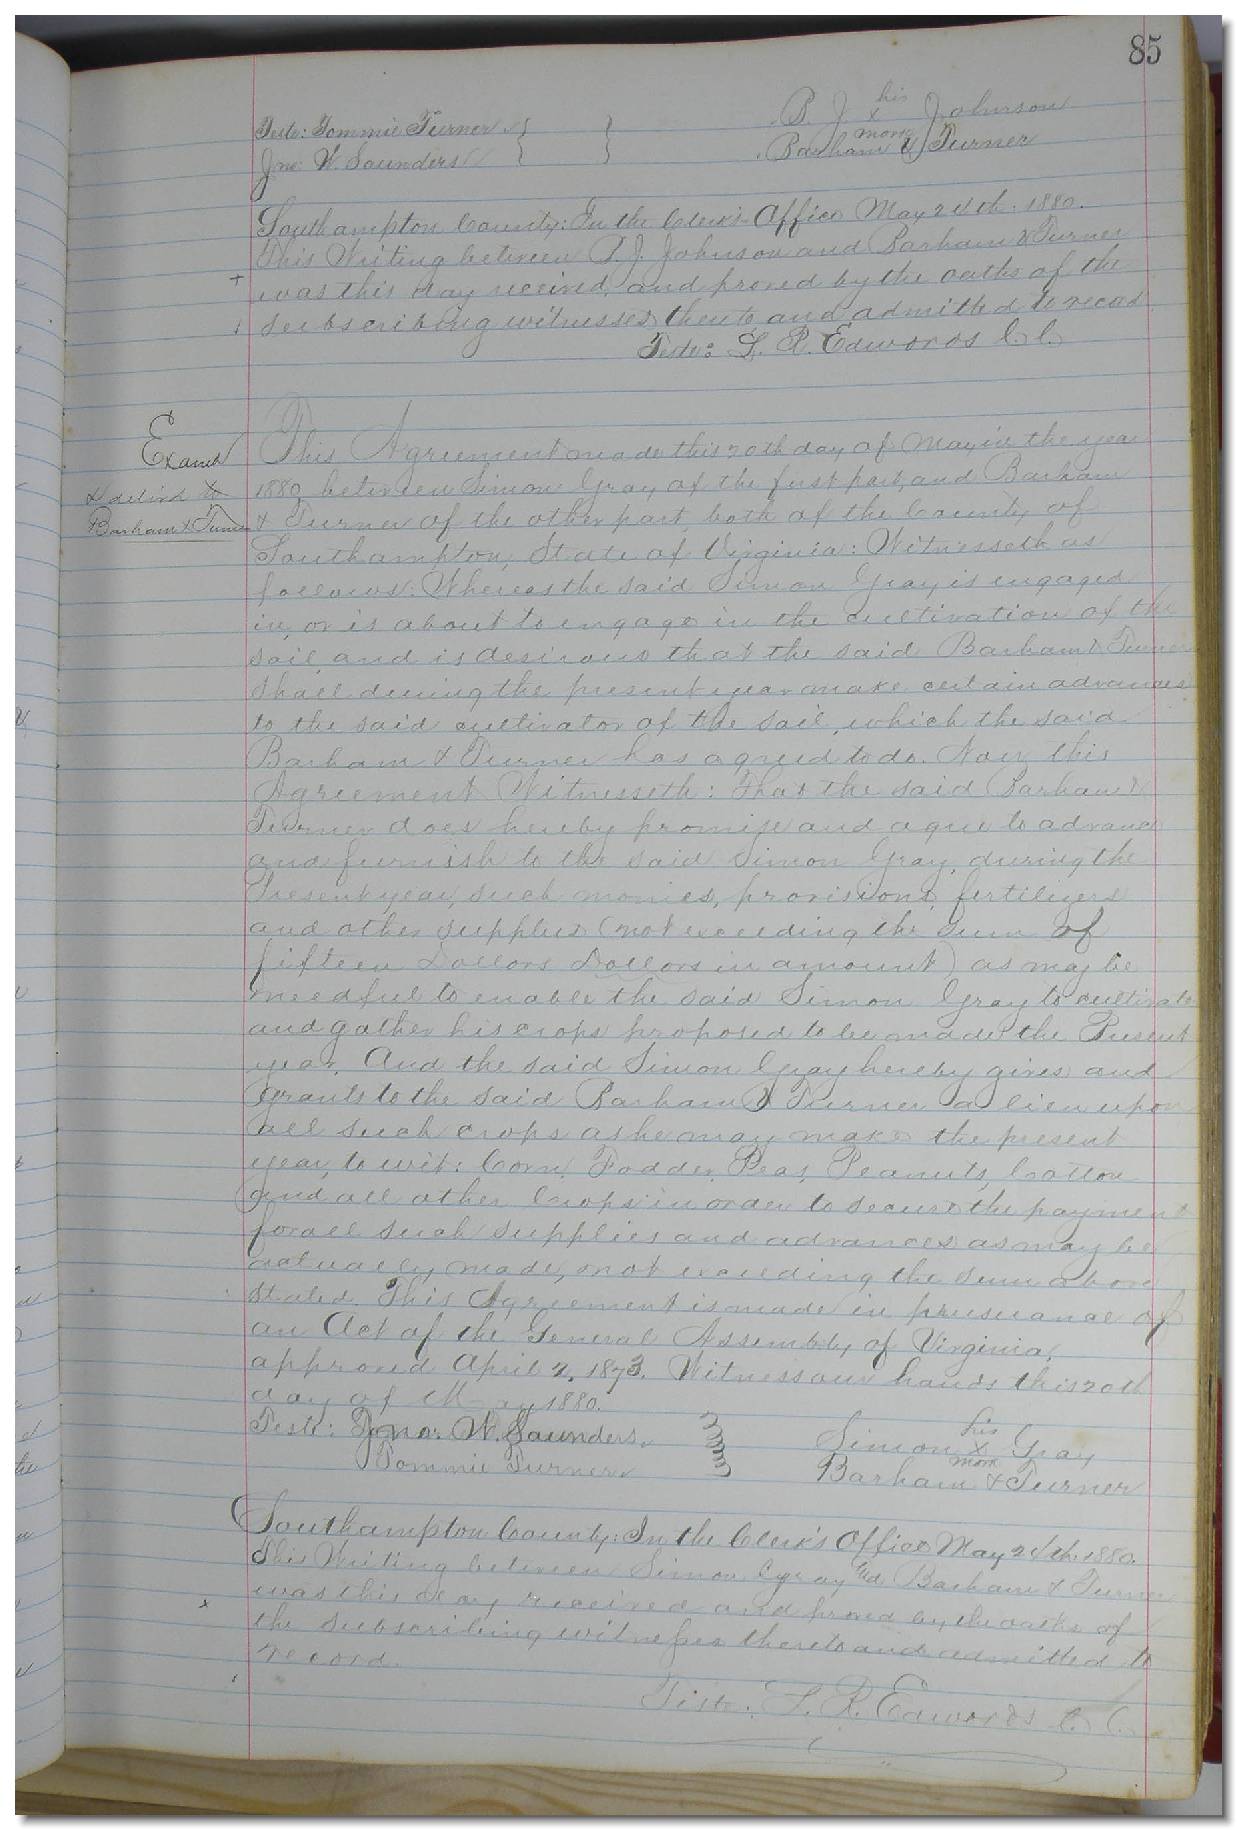 85
Teste: Tommie Turner
his
B. J. x Johnson
Jno. W. Saunders
mark
Barham & Turner
Southampton County: In the Clerk's Office May 24th. 1880.
This Writing between B. J. Johnson and Barham & Turner
was this day received, and proved by the oaths of the
subscribing witnesses thereto and admitted to record
Teste: L. R. Edwards C. C.
Examd
& delivd to
Barham & Turner
This Agreement made this 20th day of May in the year
1880, between Simon Gray of the first part, and Barham
& Turner of the other part, both of the County of
Southampton, State of Virginia: Witnesseth as
follows: Whereas the said Simon Gray is engaged
in, or is about to engage in the cultivation of the
soil, and is desirous that the said Barham & Turner
shall during the present year make certain advances
to the said cultivator of the soil, which the said
Barham & Turner has agreed to do. Now, this
Agreement Witnesseth: That the said Barham &
Turner does hereby promise and agree to advance
and furnish to the said Simon Gray, during the
Present year, such monies, provisions, fertilizers
and other supplies (not exceeding the sum of
fifteen Dollars Dollars in amount) as may be
needful to enable the said Simon Gray to cultivate
and gather his crops proposed to be made the Present
year. And the said Simon Gray hereby gives and
grants to the said Barham & Turner a lien upon
all such crops as he may make the present
year, to wit: Corn, Fodder, Peas, Peanuts, Cotton
and all other Crops in order to secure the payment
for all such supplies and advances as may be
actually made, not exceeding the sum above
stated. This Agreement is made in pursuance of
an Act of the General Assembly of Virginia,
approved April 2, 1873. Witness our hands this 20th
day of May 1880.
Teste: Jno. W. Saunders.
his
Simon x Gray
Tommie Turner
mark
Barham & Turner
Southampton County: In the Clerk's Office May 24th. 1880.
This Writing between Simon Gray and Barham & Turner
was this day received and proved by the oaths of
the subscribing witnesses thereto and admitted to
record.
Teste: L. R. Edwards C. C.